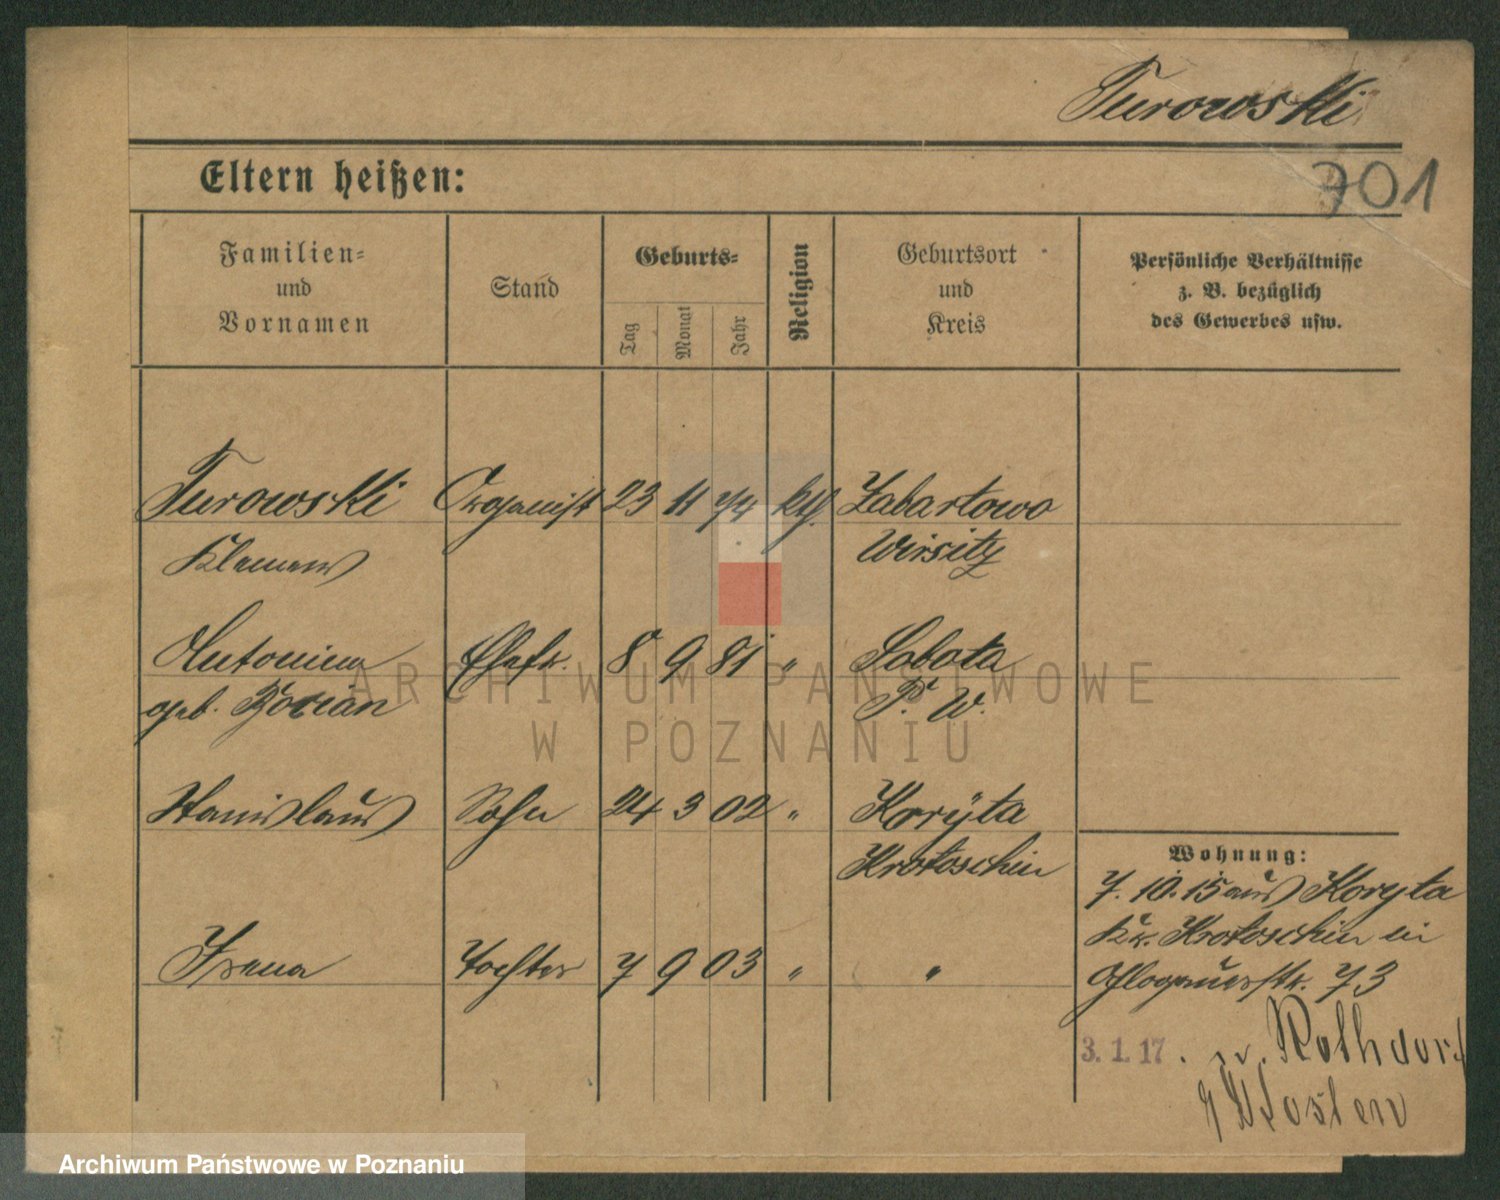 Turowski
701
Eltern heißen:
Familien= und Vornamen
Stand
Geburts=
Tag
Monat
Jahr
Religion
Geburtsort und Kreis
Persönliche Verhältnisse z. B. bezüglich des Gewerbes usw.
Turowski Organist 23 11 74 kth. Zabartowo
Klemens Wirsitz
Antonina Ehefr. 8 9 81 " Sobota
geb. P. W.
Stanislaus Sohn 24 3 02 " Koryta
Krotoschin
Wohnung:
7. 10. 15 aus Koryta
Kr. Krotoschin in
Irena Tochter 7 9 03 " "
Glogauerstr. 73
3. 1. 17. n. Rothdorf
Kosten
ARCHIWUM PAŃSTWOWE
W POZNANIU
Archiwum Państwowe w Poznaniu